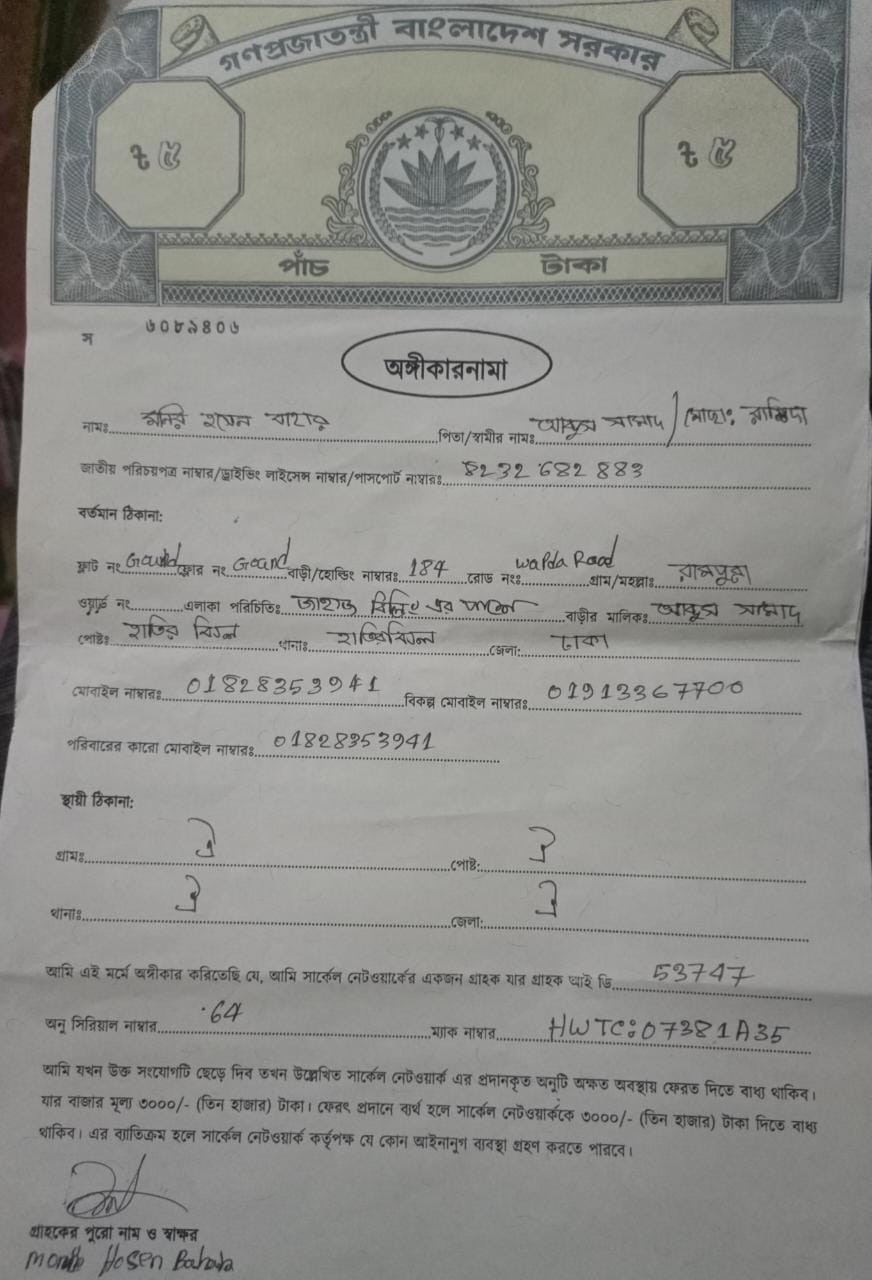 গণপ্রজাতন্ত্রী বাংলাদেশ সরকার
৳ ৫ ৳ ৫
পাঁচ টাকা
স ৬০৮৯৪০৬
অঙ্গীকারনামা
নামঃ মনির হোসেন বাহার পিতা/স্বামীর নামঃ আব্দুস সামাদ / মোছাঃ রাশিদা
জাতীয় পরিচয়পত্র নাম্বার/ড্রাইভিং লাইসেন্স নাম্বার/পাসপোর্ট নাম্বারঃ 8232682883
বর্তমান ঠিকানা:
ফ্লাট নং ফ্লোর নং বাড়ী/হোল্ডিং নাম্বারঃ 184 রোড নংঃ Wapda Road গ্রাম/মহল্লাঃ রামপুরা
ওয়ার্ড নং এলাকা পরিচিতিঃ জাহাজ বিল্ডিং এর পাশে বাড়ীর মালিকঃ আব্দুস সামাদ
পোষ্টঃ হাতির ঝিল থানাঃ হাতিরঝিল জেলা: ঢাকা
মোবাইল নাম্বারঃ 01828353941 বিকল্প মোবাইল নাম্বারঃ 01913367700
পরিবারের কারো মোবাইল নাম্বারঃ 01828353941
স্থায়ী ঠিকানা:
গ্রামঃ ঐ পোষ্ট: ঐ
থানাঃ ঐ জেলা: ঐ
আমি এই মর্মে অঙ্গীকার করিতেছি যে, আমি সার্কেল নেটওয়ার্কের একজন গ্রাহক যার গ্রাহক আই ডি 53747
অনু সিরিয়াল নাম্বার 64 ম্যাক নাম্বার HWTC:07381A35
আমি যখন উক্ত সংযোগটি ছেড়ে দিব তখন উল্লেখিত সার্কেল নেটওয়ার্ক এর প্রদানকৃত অনুটি অক্ষত অবস্থায় ফেরত দিতে বাধ্য থাকিব।
যার বাজার মূল্য ৩০০০/- (তিন হাজার) টাকা। ফেরৎ প্রদানে ব্যর্থ হলে সার্কেল নেটওয়ার্ককে ৩০০০/- (তিন হাজার) টাকা দিতে বাধ্য
থাকিব। এর ব্যতিক্রম হলে সার্কেল নেটওয়ার্ক কর্তৃপক্ষ যে কোন আইনানুগ ব্যবস্থা গ্রহণ করতে পারবে।
গ্রাহকের পুরো নাম ও স্বাক্ষর
Hosen